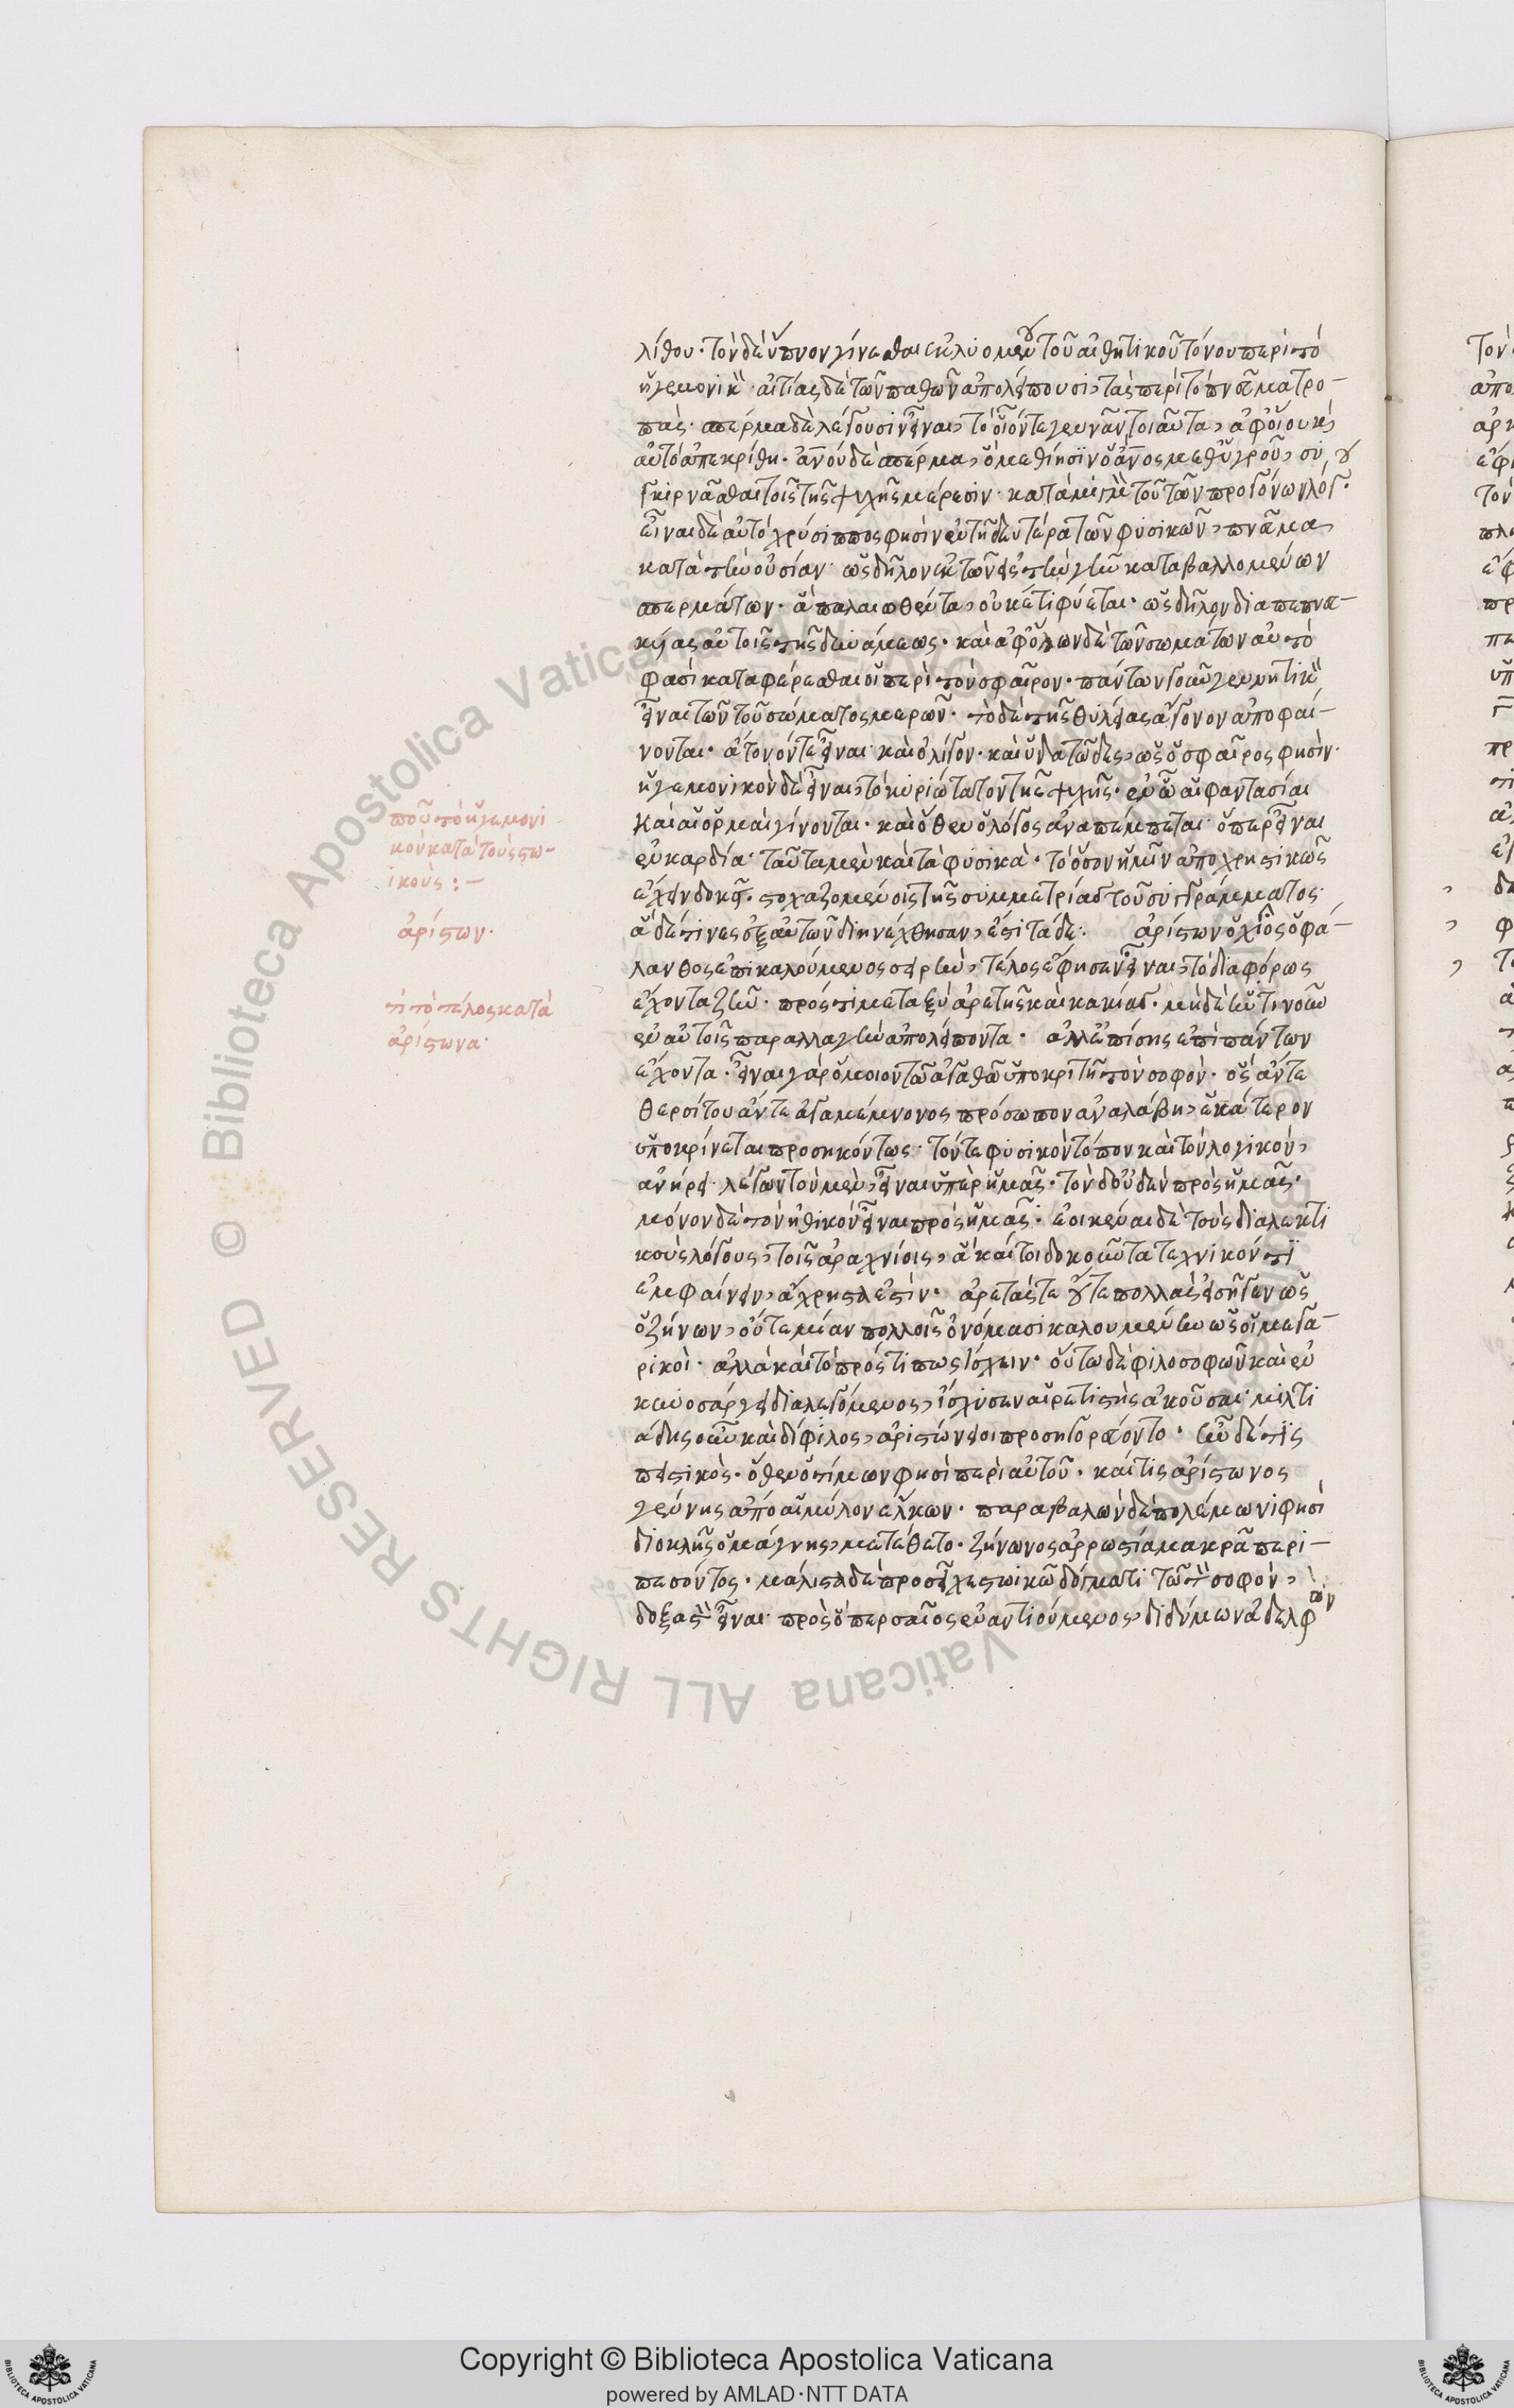 λίθου· τὸν δὲ ὕπνον γίνεσθαι ἐκλυομένου τοῦ αἰσθητικοῦ τόνου περὶ τὸ
ἡγεμονικὸν· αἰτίας δὲ τῶν παθῶν ἀπολείπουσι, τὰς περὶ τὸ πνεῦμα τρο-
πάς· σπέρμα δὲ λέγουσιν εἶναι, τὸ οἷόν τε γεννᾶν τοιαῦτα, ἀφ' οἵου καὶ
αὐτὸ ἀπεκρίθη· ἀνου δὲ σπέρμα, ὃ μεθίησιν ὁ ἄνος μεθ' ὑγροῦ, συγ
κιρνᾶσθαι τοῖς τῆς ψυχῆς μέρεσιν· κατὰ μιγμὸν τοῦ τῶν προγόνων λόγου·
εἶναι δὲ αὐτὸ χρύσιππος φησὶν ἐν τῇ δευτέρα τῶν φυσικῶν, πνεῦμα
κατὰ τὴν οὐσίαν· ὡς δῆλον ἐκ τῶν εἰς τὴν γῆν καταβαλλομένων
σπερμάτων· ἃ παλαιωθέντα, οὐκέτι φύεται· ὡς δῆλον διαπεπνευ-
κυίας αὐτοῖς τῆς δυνάμεως· καὶ ἀφ' ὅλων δὲ τῶν σωμάτων αὐτό
φασὶ καταφέρεσθαι οἱ περὶ τὸν σφαῖρον· πάντων γοῦν γεννητικὸν
εἶναι τῶν τοῦ σώματος μερῶν· τὸ δὲ τῆς θηλείας ἄγονον ἀποφαί-
νονται· ἄτονόν τε εἶναι· καὶ ὀλίγον· καὶ ὑδατῶδες, ὡς ὁ σφαῖρος φησὶν·
ἡγεμονικὸν δὲ εἶναι, τὸ κυριώτατον τῆς ψυχῆς· ἐν ᾧ αἱ φαντασίαι
καὶ αἱ ὁρμαὶ γίνονται· καὶ ὅθεν ὁ λόγος ἀναπέμπεται· ὅπερ εἶναι
ἐν καρδία· ταῦτα μὲν καὶ τὰ φυσικὰ· τὸ ὅσον ἡμῖν ἀποχρηστικῶς
ἔχειν δοκεῖ· στοχαζομένοις τῆς συμμετρίας τοῦ συγγράμματος·
ἃ δέ τινες ἐξ αὐτῶν διηνέχθησαν, ἐστὶ τάδε· ἀρίστων ὁ χῖος ὁ φά-
λανθος ἐπικαλούμενος σειρὴν, τέλος ἔφησεν εἶναι, τὸ διαφόρως
ἔχοντα ζῆν· πρός τι μεταξὺ ἀρετῆς καὶ κακίας· μὴ δὲ ἥντινοῦν
ἐν αὐτοῖς παραλλαγὴν ἀπολείποντα· ἀλλ' ἐπίσης ἐπὶ πάντων
ἔχοντα· εἶναι γὰρ ὅμοιον τῶ ἀγαθῶ ὑποκριτῇ τὸν σοφόν· ὃς ἄν τε
θερσίτου ἄν τε ἀγαμέμνονος πρόσωπον ἀναλάβη, ἑκάτερον
ὑποκρίνεται προσηκόντως· τόν τε φυσικὸν τόπον καὶ τὸν λογικόν,
ἀνήρει· λέγων τὸν μὲν, εἶναι ὑπὲρ ἡμᾶς· τὸν δ' οὐδὲν πρὸς ἡμᾶς·
μόνον δὲ τὸν ἠθικὸν εἶναι πρὸς ἡμᾶς· ἐοικέναι δὲ τοὺς διαλεκτι
κοὺς λόγους, τοῖς ἀραχνίοις, ἃ καίτοι δοκοῦντα τεχνικόν τι
ἐμφαίνειν, ἄχρηστά ἐστίν· ἀρετάς τε οὔτε πολλὰς εἰσῆγεν ὡς
ὁ ζήνων, οὔτε μίαν πολλοῖς ὀνόμασι καλουμένην ὡς οἱ μεγα-
ρικοὶ· ἀλλὰ καὶ τὸ πρός τι πως ἴσχειν· οὕτω δὲ φιλοσοφῶν καὶ ἐν
κυνοσάργει διαλεγόμενος, ἴσχυσεν αἱρετιστὴς ἀκοῦσαι· μιλτι
άδης οὖν καὶ δίφιλος, ἀριστώνειοι προσηγορεύοντο· ἦν δέ τις
πειστικὸς· ὅθεν ὁ τίμων φησὶ περὶ αὐτοῦ· καί τις ἀρίστωνος
γέννης ἀπὸ αἱμύλον ἕλκων· παραβαλὼν δὲ πολέμωνι φησὶ
διοκλῆς ὁ μάγνης, μετέθετο· ζήνωνος ἀρρωστία μακρᾶ περι-
πεσόντος· μάλιστα δὲ προσεῖχε στωικῶ δόγματι τῶ τὸν σοφὸν,
δοξαστὸν εἶναι· πρὸς ὃ περσαῖος ἐναντιούμενος, διδύμων ἀδελφῶν
ποῦ τὸ ἡγεμονι
κὸν κατὰ τοὺς στω-
ικοὺς:-
ἀρίστων·
τί τὸ τέλος κατὰ
ἀρίστωνα·
© Biblioteca Apostolica Vaticana ALL RIGHTS RESERVED
Copyright © Biblioteca Apostolica Vaticana
powered by AMLAD·NTT DATA
BIBLIOTECA APOSTOLICA VATICANA
BIBLIOTECA APOSTOLICA VATICANA